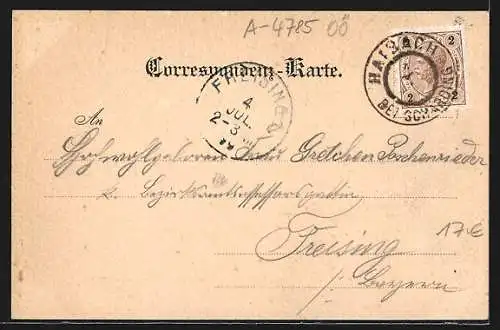 A-4785 OÖ
2
HAIBACH
BEI SCHÄRDING
Correspondenz-Karte.
FREISING 2
4
JUL.
2-3
99
An
Hochwohlgeboren Frau Gretchen Peschenrieder
k. Bezirksamtsassessorsgattin
Freising
17.€
/: Bayern